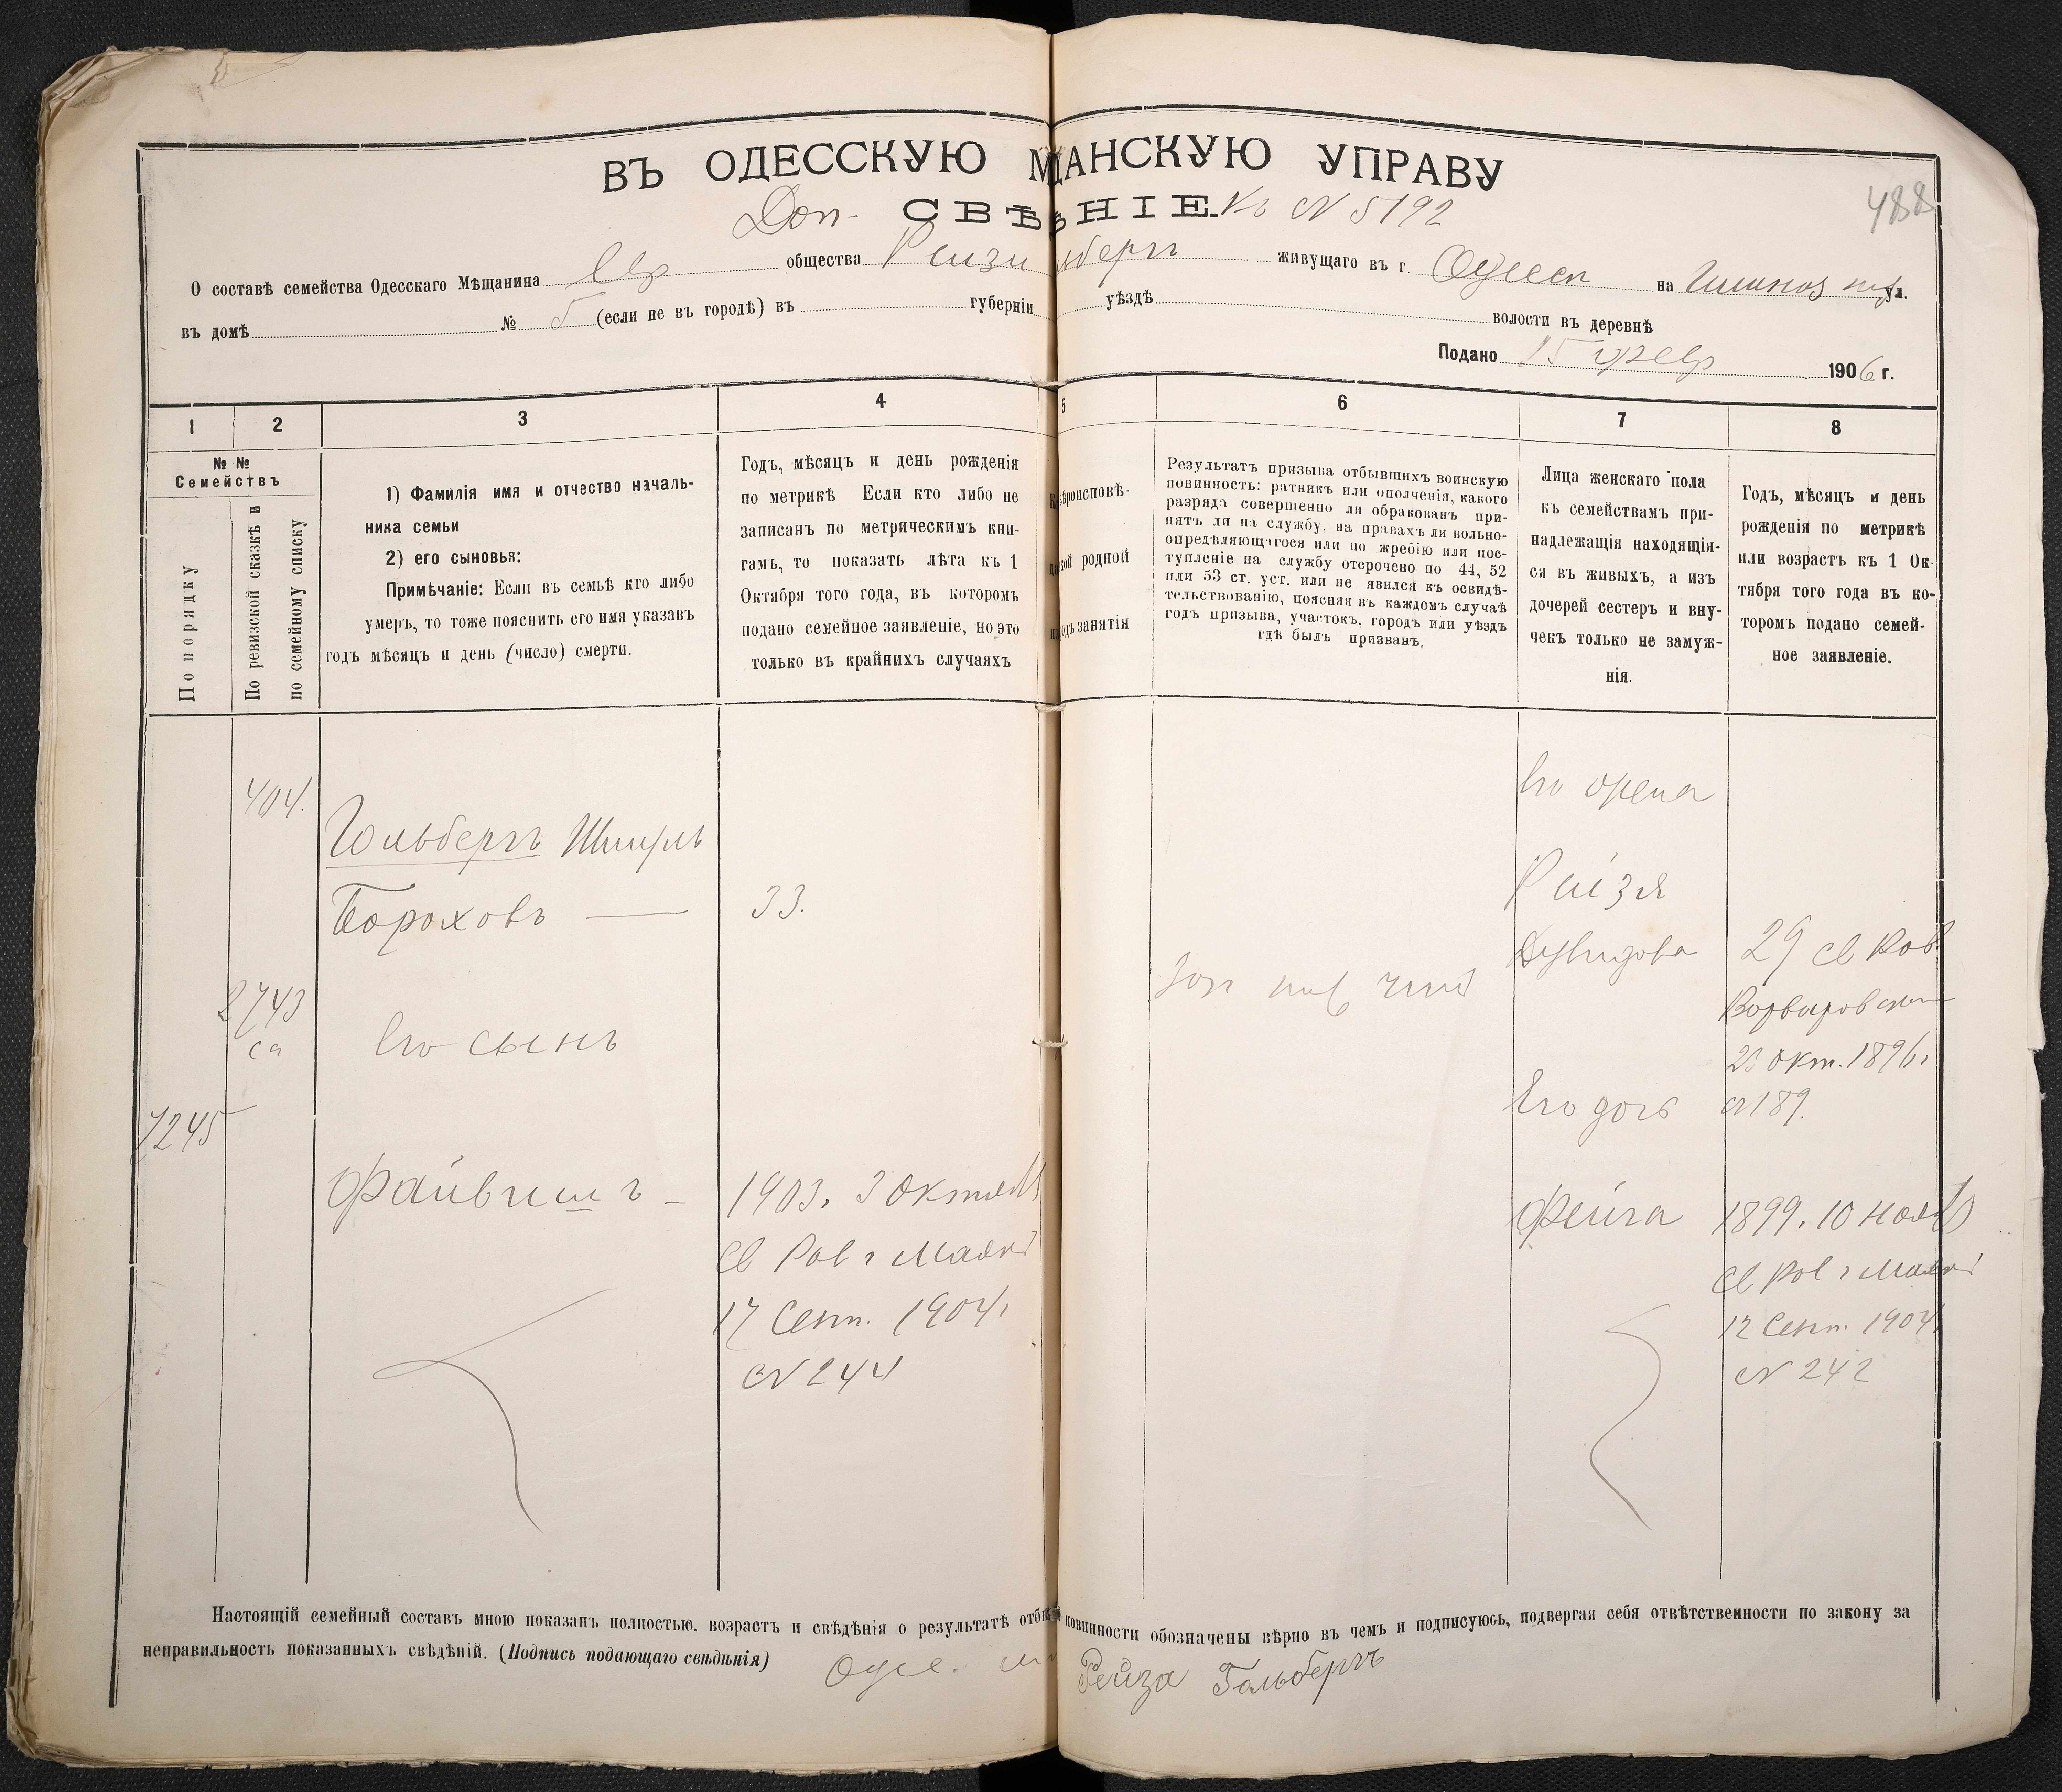 ВЪ ОДЕССКУЮ М ЩАНСКУЮ УПРАВУ
Доп- СВѢ НІЕ. Къ № 5192
488
О составѣ семейства Одесскаго Мѣщанина Евр общества живущаго въ г. Одесса на ул.
въ домѣ № 5 (если не въ городѣ) въ губерніи уѣздѣ волости въ деревнѣ
Подано 15 февр 1906 г.
1 2 3 4 5 6 7 8
№ №
Семействъ
По порядку
По ревизской сказкѣ и
по семейному списку
1) Фамилія имя и отчество началь-
ника семьи
2) его сыновья:
Примѣчаніе: Если въ семьѣ кто либо
умеръ, то тоже пояснить его имя указавъ
годъ мѣсяцъ и день (число) смерти.
Годъ, мѣсяцъ и день рожденія
по метрикѣ Если кто либо не
записанъ по метрическимъ кни-
гамъ, то показать лѣта къ 1
Октября того года, въ которомъ
подано семейное заявленіе, но это
только въ крайнихъ случаяхъ
вѣроисповѣ-
родной
занятія
Результатъ призыва отбывшихъ воинскую
повинность: ратникъ или ополченія, какого
разряда совершенно ли обракованъ при-
нятъ ли на службу, на правахъ ли вольно-
опредѣляющагося или по жребію или пос-
тупленіе на службу отсрочено по 44, 52
или 53 ст. уст. или не явился къ освидѣ-
тельствованію, поясняя въ каждомъ случаѣ
годъ призыва, участокъ, городъ или уѣздъ
гдѣ былъ призванъ.
Лица женскаго пола
къ семействамъ при-
надлежащія находящія-
ся въ живыхъ, а изъ
дочерей сестеръ и вну-
чекъ только не замуж-
нія.
Годъ, мѣсяцъ и день
рожденія по метрикѣ
или возрастъ къ 1 Ок-
тября того года въ ко-
торомъ подано семей-
ное заявленіе.
404.
Гольбергъ Шмуль
Бороховъ — 33.
2743
са
Его сынъ
7245
Файвишъ –
1903. 3 Октяб
Св Рав г Маяки
17 Сент. 1904г
№ 244
Его жена
Рейзя
Давидова
29 св Рав
23 окт. 1896г
№ 189.
Его дочь
Фейга
1899. 10 нояб
Св Рав г Маяки
17 Сент. 1904
№ 242
Настоящій семейный составъ мною показанъ полностью, возрастъ и свѣдѣнія о результатѣ отбы повинности обозначены вѣрно въ чемъ и подписуюсь, подвергая себя отвѣтственности по закону за
неправильность показанныхъ свѣдѣній. (Подпись подающаго свѣдѣнія) Одес. Рейза Гольбергъ